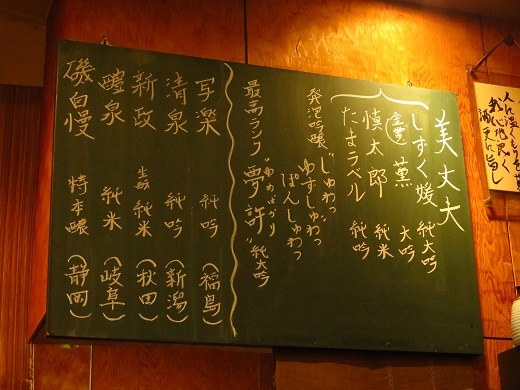 美丈夫
しずく媛 純大吟
金賞 薫 大吟
慎太郎 純米
たまラベル 純吟
発泡吟醸 "じゅわっ
ゆずしゅわっ
ぽんしゅわっ
最高ランク "夢許" 純大吟
ゆめばかり
写楽 純吟 (福島)
清泉 純吟 (新潟)
新政 生酛 純米 (秋田)
醴泉 純米 (岐阜)
磯自慢 特本醸 (静岡)